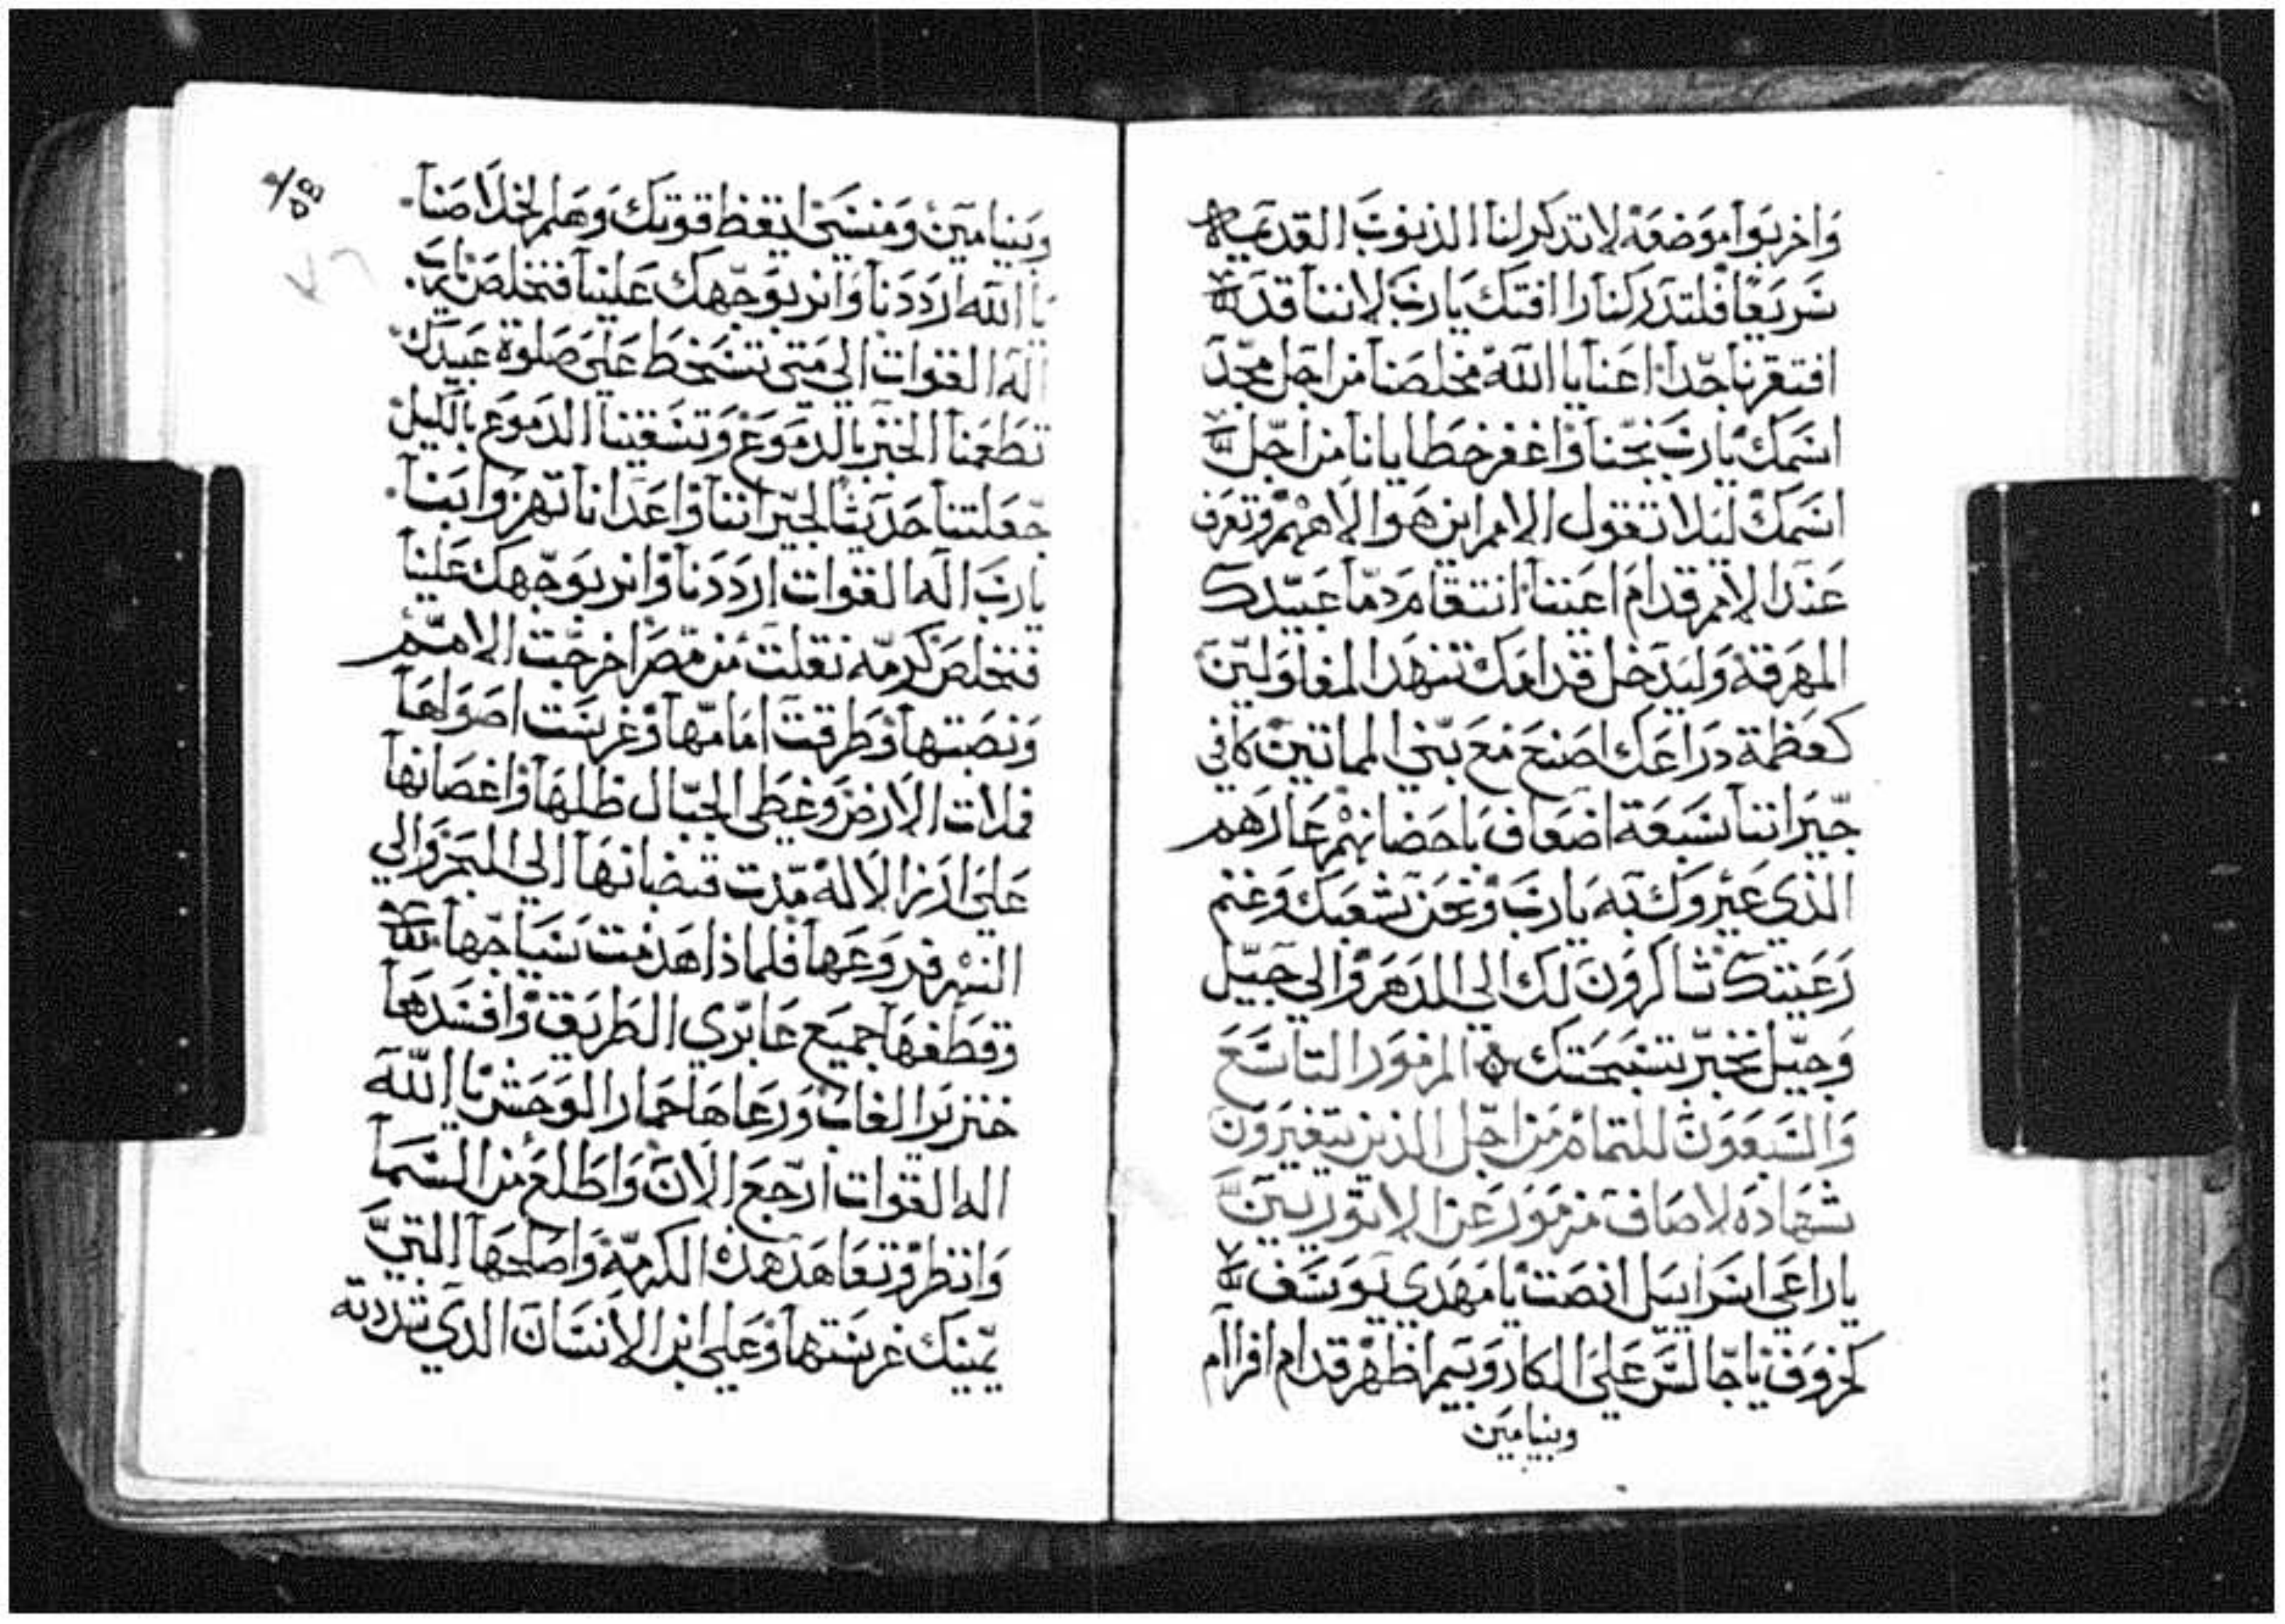 وَاخربَوا موَضعَهْ لا تدكر لنا الذنوبَ القديمه
سَريعًا فلتدركنا رافتك يارب لاننا قد
افتقرنا جدا اعنا يا الله مخلصنا من اجل مجد
اسمك يارب نجنا واغفر خطايانا من اجل
اسمك ليلا تقول الامم اين هو الاههم وتعرف
عند الامم قدام اعيننا انتقام دما عبيدك
المهرقة وليدخل قدامك تنهد المغلولين
كعظمة دراعك اصنع مع بني المماتين كافي
جيراننا سبعة اضعاف باحضانهم عارهم
الذي عيروك به يارب ونحن شعبك وغنم
رعيتك شاكرون لك الي الدهر والي جيل
وجيل نخبر بتسبحتك ه المزمور التاسع
والسبعون للتمام من اجل الذين يتغيرون
شهاده لاصاف مزمور عن الاتوريين
يا راعي اسراييل انصت يا مهدي يوسف
كخروف يا جالس علي الكاروبيم اظهر قدام افراام
وبنيامين
وبنيامين ومنسي ايقظ قوتك وهلم لخلاصنا
يا الله ارددنا وانر بوجهك علينا فنخلص يارب
اله القوات الي متي تسخط علي صلوة عبيدك
تطعمنا الخبز بالدموع وتسقينا الدموع بالكيل
جعلتنا حديثا لجيراننا واعدانا تهزوا بنا
يارب اله القوات ارددنا وانر بوجهك علينا
فنخلص كرمه نقلت من مصر اخرجت الامم
ونصبتها وطرقت امامها وغرست اصولها
فملات الارض وغطي الجبال ظلها واغصانها
علي ارز الاله مدت قضبانها الي البحر والي
النهر فروعها فلماذا هدمت سياجها
وقطفها جميع عابري الطريق وافسدها
خنزير الغاب ورعاها حمار الوحش يا الله
اله القوات ارجع الان واطلع من السما
وانظر وتعاهد هذه الكرمه واصلحها التي
يمينك غرستها وعلي ابن الانسان الدي شددته